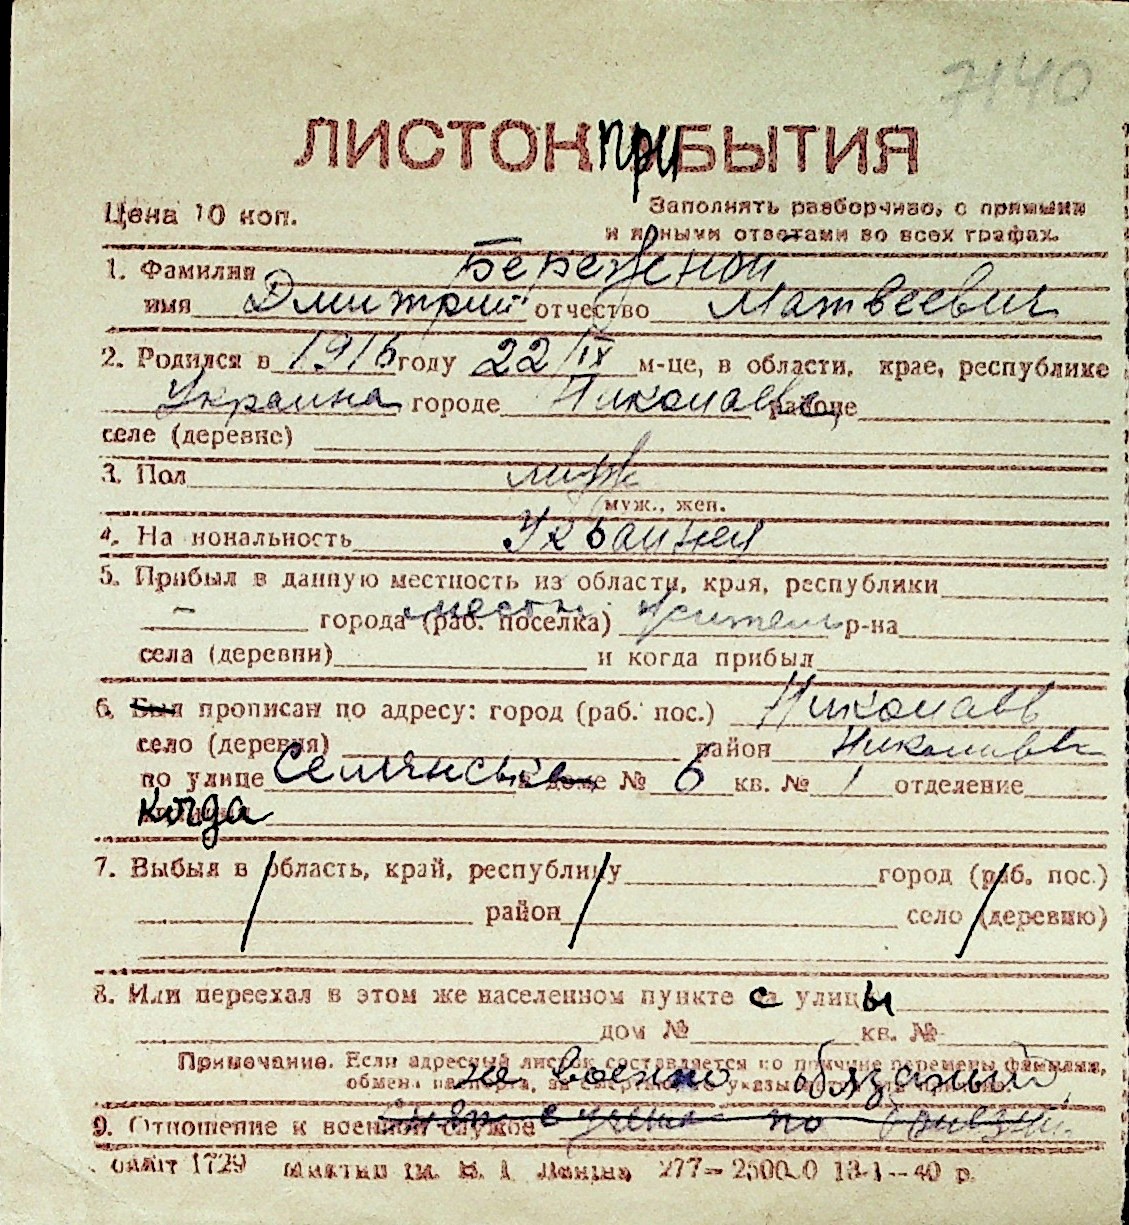 7140
ЛИСТОК ПРИБЫТИЯ
Цена 10 коп. Заполнять разборчиво, с прямыми
и ясными ответами во всех графах.
1. Фамилия Береженой
имя Дмитрий отчество Матвеевич
2. Родился в 1916 году 22/IX м-це, в области, крае, республике
Украина городе Николаев районе
селе (деревне)
3. Пол муж
муж., жен.
4. На иональность Украинец
5. Прибыл в данную местность из области, края, республики
— города (раб. поселка) местн. житель р-на
села (деревни) и когда прибыл
6. Был прописан по адресу: город (раб. пос.) Николаев
село (деревня) район Николаевск
по улице доме № 6 кв. № 1 отделение
когда
7. Выбыл в область, край, республику город (раб. пос.)
район село (деревню)
8. Или переехал в этом же населенном пункте с улицы
дом № кв. №
Примечание. Если адресный листок составляется по причине перемены фамилии,
обмена
не военно обязаный
9. Отношение к военной службе Снят с учета по
1729 277—2500 0 13-1—40 р.